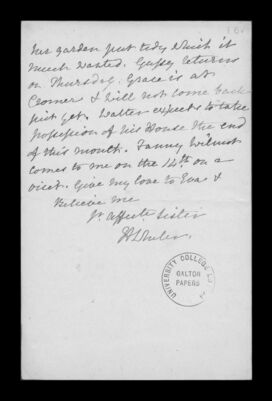 his garden put tidy which it
much wanted. Gussy returns
on Thursday. Grace is at
Cromer & will not come back
just yet. Walter expects to take
possession of his House the end
of this month. Fanny Wilmot
comes to me on the 14th on a
visit. Give my love to Eva &
Believe me
Yr affecte Sister
UNIVERSITY COLLEGE
GALTON
PAPERS